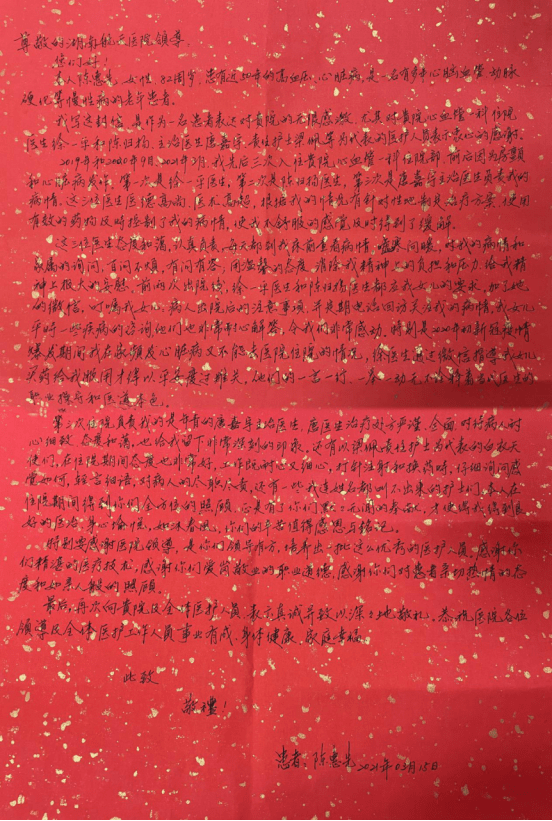 尊敬的湖南航天医院领导:
您们好!
本人陈惠先,女性,82周岁,患有近50年的高血压、心脏病,是一名有多年心脑血管、动脉
硬化等慢性病的老年患者。
我写这封信,是作为一名患者表达对贵院的无限感激,尤其对贵院心血管一科住院
医生徐一平和陈归扬、主治医生唐嘉宇、责任护士梁佩等为代表的医护人员表示衷心的感谢。
2019年和2020年9月、2021年3月,我先后三次入住贵院心血管一科住院部,前后因为房颤
和心脏病发作,第一次是徐一平医生,第二次是陈归扬医生,第三次是唐嘉宇主治医生负责我的
病情。这三位医生医德高尚,医术高超,根据我的情况有针对性地制定治疗方案,使用
有效的药物及时控制了我的病情,使我不舒服的感觉及时得到了缓解。
这三位医生态度和蔼,认真负责,每天都到我床前查看病情,嘘寒问暖,对我的病情和
家属的询问,百问不烦,有问有答,用温馨的态度,消除我精神上的负担和压力,给我精
神上极大的安慰,前两次出院后,徐一平医生和陈归扬医生都应我女儿的要求,加了她
的微信,叮嘱我女儿,病人出院后的注意事项,并定期电话回访关注我的病情,我女儿
平时一些疾病的咨询他们也非常耐心解答,令我们非常感动,特别是2020年的新冠疫情
爆发期间我在家频发心脏病又不能去医院住院的情况,徐医生通过微信指导我女儿
买药给我服用才得以平安度过难关,他们的一言一行、一举一动无不诠释着当代医生的
职业操守和医道本色。
第三次住院负责我的是年青的唐嘉宇主治医生,唐医生治疗处方严谨、全面,对待病人耐
心细致,态度和蔼,也给我留下非常深刻的印象,还有以梁佩责任护士为代表的白衣天
使们,在住院期间态度也非常好,工作既耐心又细心,打针注射和换药时,仔细询问感
觉如何,轻言细语,对病人的尽职尽责,还有一些我连姓名都叫不出来的护士们,本人在
住院期间得到你们全方位的照顾,正是有了你们默默无闻的奉献,才使得我得到良
好的医治,身心愉悦,如沐春风,你们的辛苦值得感恩与铭记。
特别要感谢医院领导,是你们领导有方,培养出一批这么优秀的医护人员,感谢你
们精湛的医疗技术,感谢你们爱岗敬业的职业道德,感谢你们对患者亲切热情的态
度和如亲人般的照顾。
最后,再次向贵院及全体医护人员表示真诚并致以深深地敬礼。恭祝医院各位
领导及全体医护工作人员事业有成,身体健康,家庭幸福。
此致
敬禮!
患者:陈惠先 2021年03月15日